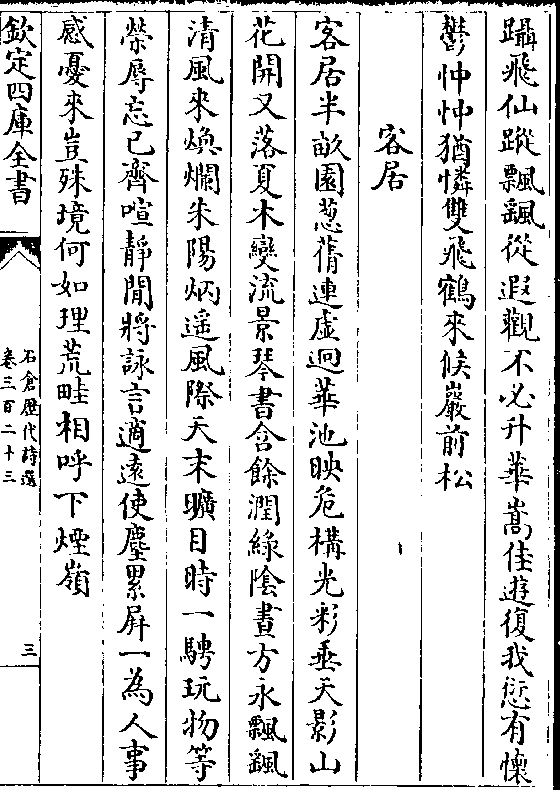 躡飛仙蹤飄飄從遐觀不必升華嵩佳遊復我愆有懷
鬱忡忡猶憐雙飛鶴來候巖前松
客居
客居半畝園蔥蒨連虛迥華池映危構光彩垂天影山
花開又落夏木變流景琴書含餘潤綠陰晝方永飄飄
清風來煥爛朱陽炳遥風際天末曠目時一騁玩物等
榮辱忘己齊喧靜閒將詠言適遠使塵累屏一為人事
感憂來豈殊境何如理荒畦相呼下煙嶺
欽定四庫全書
石倉歴代詩選
卷三百二十三
三